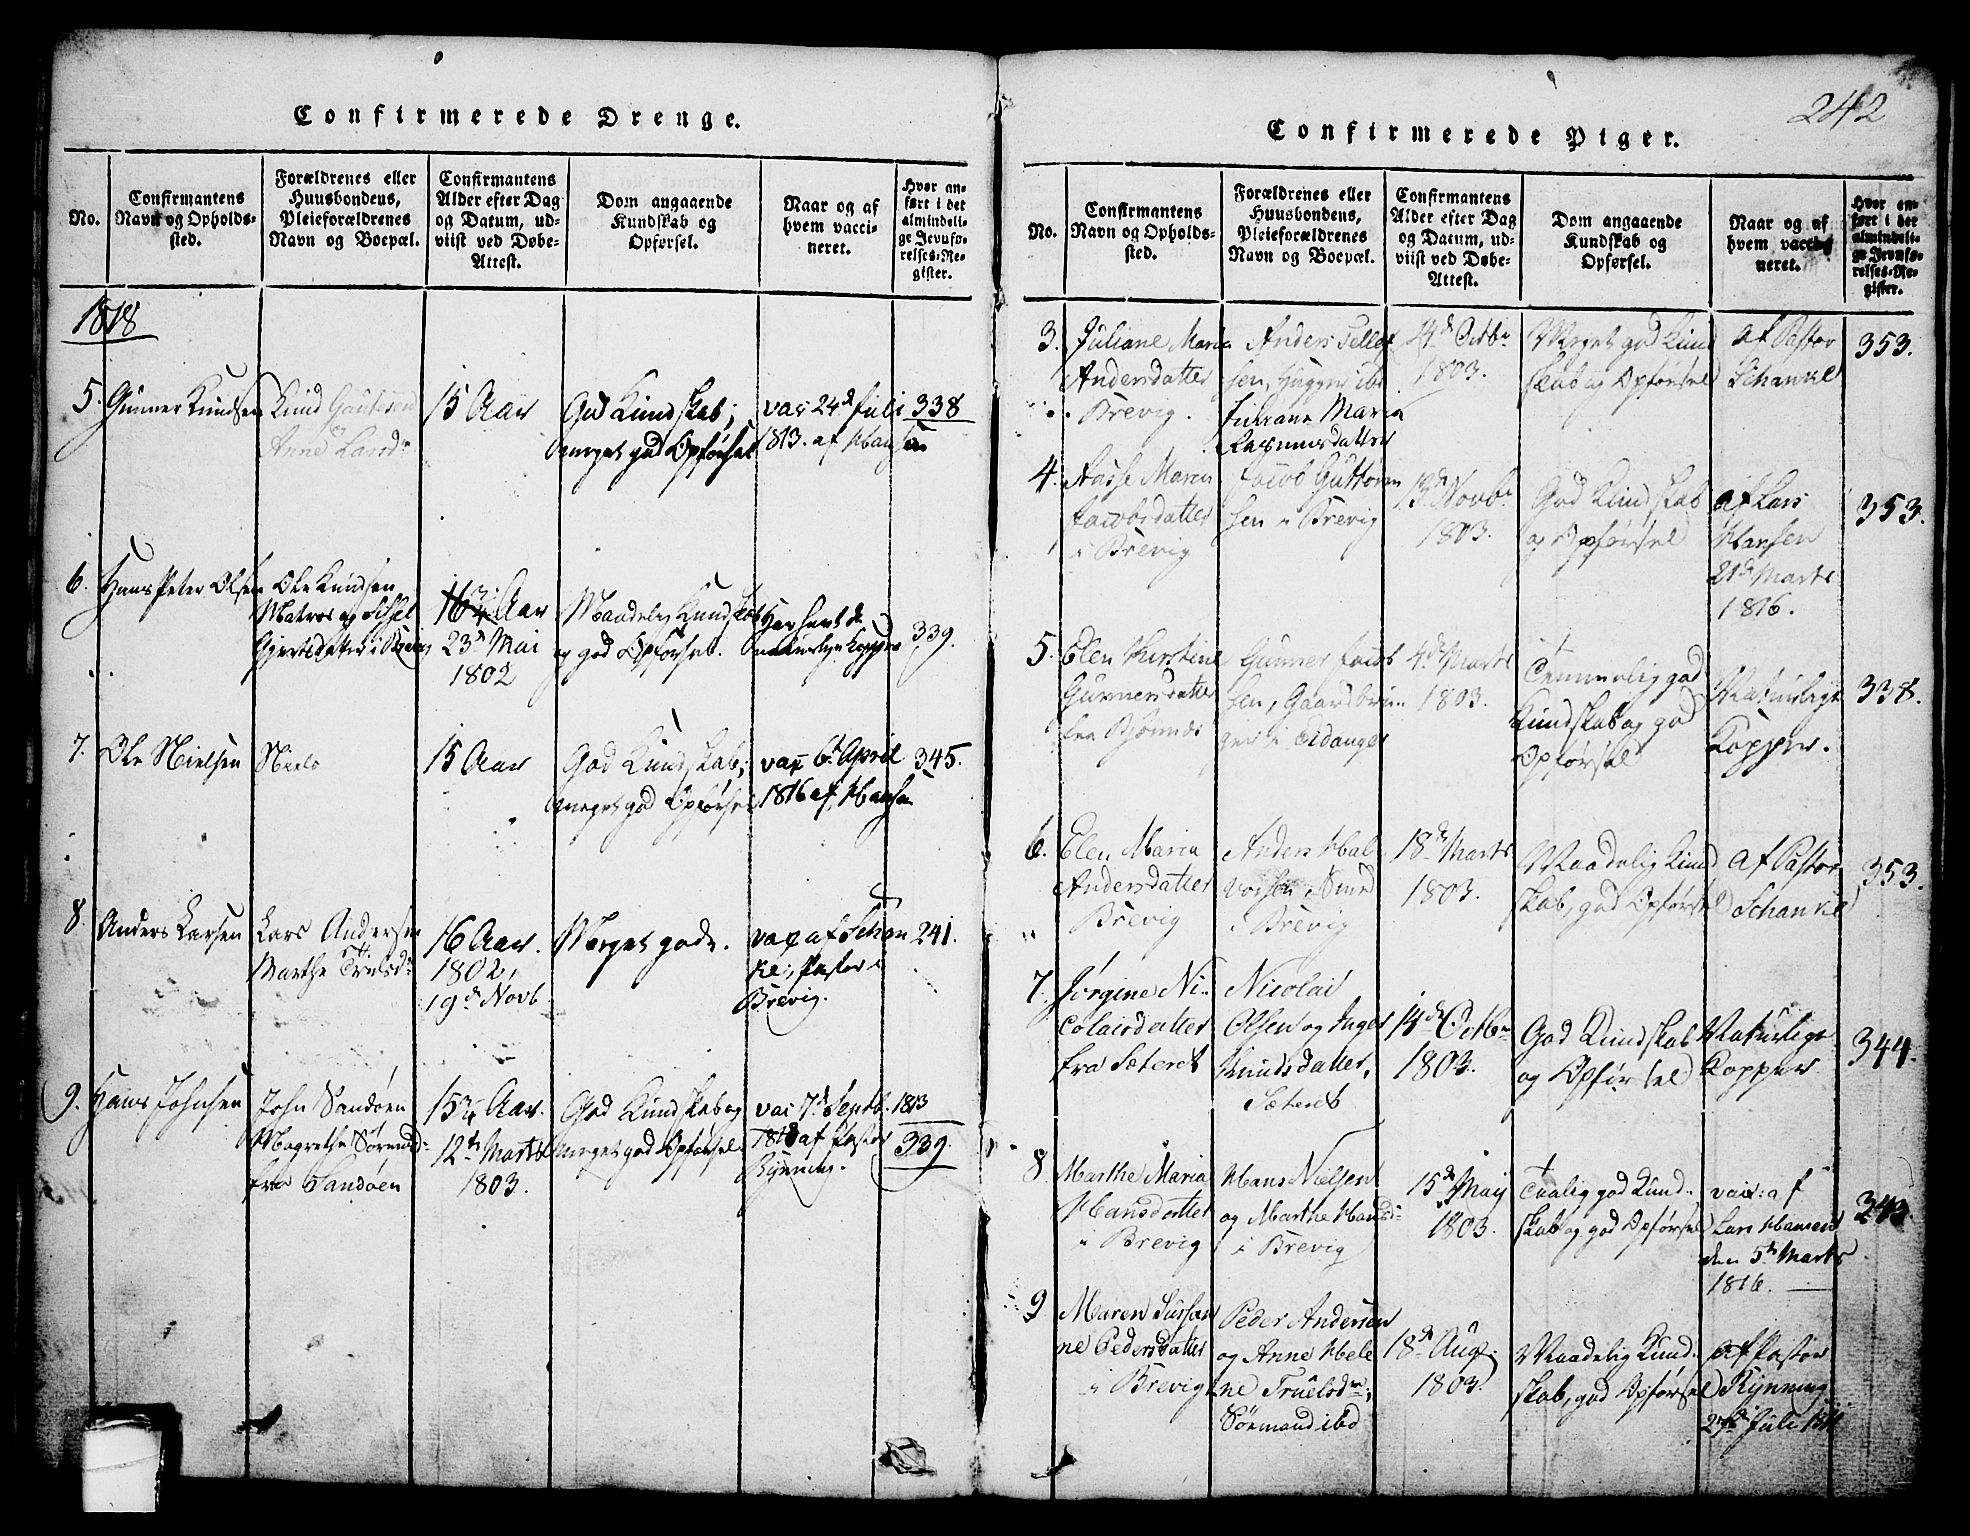 Confirmerede Drenge.
No.
Confirmantens
Navn og Opholds-
sted.
Forældrenes eller
Huusbondens,
Pleieforældrenes
Navn og Boepæl.
Confirmantens
Alder efter Dag
og Datum, ud-
viist ved Døbe-
Attest.
Dom angaaende
Kundskab og
Opførsel.
Naar og af
hvem vacci-
neret.
Hvor an-
ført i det
almindeli-
ge Jevnfø-
relses-Re-
gister.
1818
5. Gunner Knudsen
Knud
Anne Larsdr
15 Aar
God Kundskab;
meget god Opførsel
vac 24de Juli
1813. af Hansen
338
6. Hans Peter Olsen
Ole Knudsen
Matros og
16 Aar
23de Mai
1802
Maadelig Kundskab
og god Opførsel.
Har havt de
naturlige Kopper
339.
7. Ole Nielsen
Niels
15 Aar
God Kundskab;
meget god Opførsel
vac 6te April
1816 af Hansen
345.
8. Anders Larsen
Lars Andersen
Marthe Trulsdr
16 Aar.
1802
19de Novb
Meget gode.
vac af Schan
ke, Pastor i
Brevig.
241.
9. Hans Johnsen
John Sandøen
Magrethe
fra Sandøen
15 3/4 Aar.
12te Marts
1803.
God Kundskab og
meget god Opførsel
vac 7de Septb. 1813
af Pastor
Rynning.
339.
242
Confirmerede Piger.
No.
Confirmantens
Navn og Opholds-
sted.
Forældrenes eller
Huusbondens,
Pleieforældrenes
Navn og Boepæl.
Confirmantens
Alder efter Dag
og Datum, ud-
viist ved Døbe-
Attest.
Dom angaaende
Kundskab og
Opførsel.
Naar og af
hvem vacci-
neret.
Hvor an-
ført i det
almindeli-
ge Jevnfø-
relses-Re-
gister.
3. Juliane Maria
Andersdatter
Brevig.
Anders Tellef
sen,
Juliane Maria
Rasmusdatter
Octbr
1803.
Meget god Kund
skab og Opførsel
af Pastor
Schanke
353.
4. Aasse Maren
Jacobsdatter
i Brevig
Jacob Guttorm
sen i Brevig
13de Novbr
1803.
God Kundskab
og Opførsel
af Lars
Hansen
21de Marts
1816.
353.
5. Elen Kirstine
Gunnersdatter
fra Bjønnes
Gunner Jacob
sen, Gaardbru-
ger i Eidanger
4de Marts
1803.
Temmelig god
Kundskab og god
Opførsel
Naturlige
Kopper.
338.
6. Elen Maria
Andersdatter
Brevig
Anders Hal
vorsen Smed
i Brevig
18de Marts
1803.
Maadelig Kund
skab, god Opførsel
af Pastor
Schanke
353.
7. Jørgine Ni-
colaisdatter
fra Sæteret
Nicolai
Olsen og Inger
Knudsdatter,
Sæteret
14de Octbr
1803.
God Kundskab
og Opførsel
Naturlige
Kopper
344.
8. Marthe Maria
Hansdatter
i Brevig
Hans Nielsen
og Marthe Hansdr
i Brevig
15de May
1803.
Taalig god Kund-
skab og god Opførsel
vac: af
Lars Hansen
den 5te Marts
1816.
243.
9 Maren Sussan
ne Pedersdatter
i Brevig
Peder Andersen
og Anne Hele
ne Truelsdr,
Sørmand ibd
18de Aug.
1803.
Maadelig Kund-
skab, god Opførsel
af Pastor
Rynning
Juli